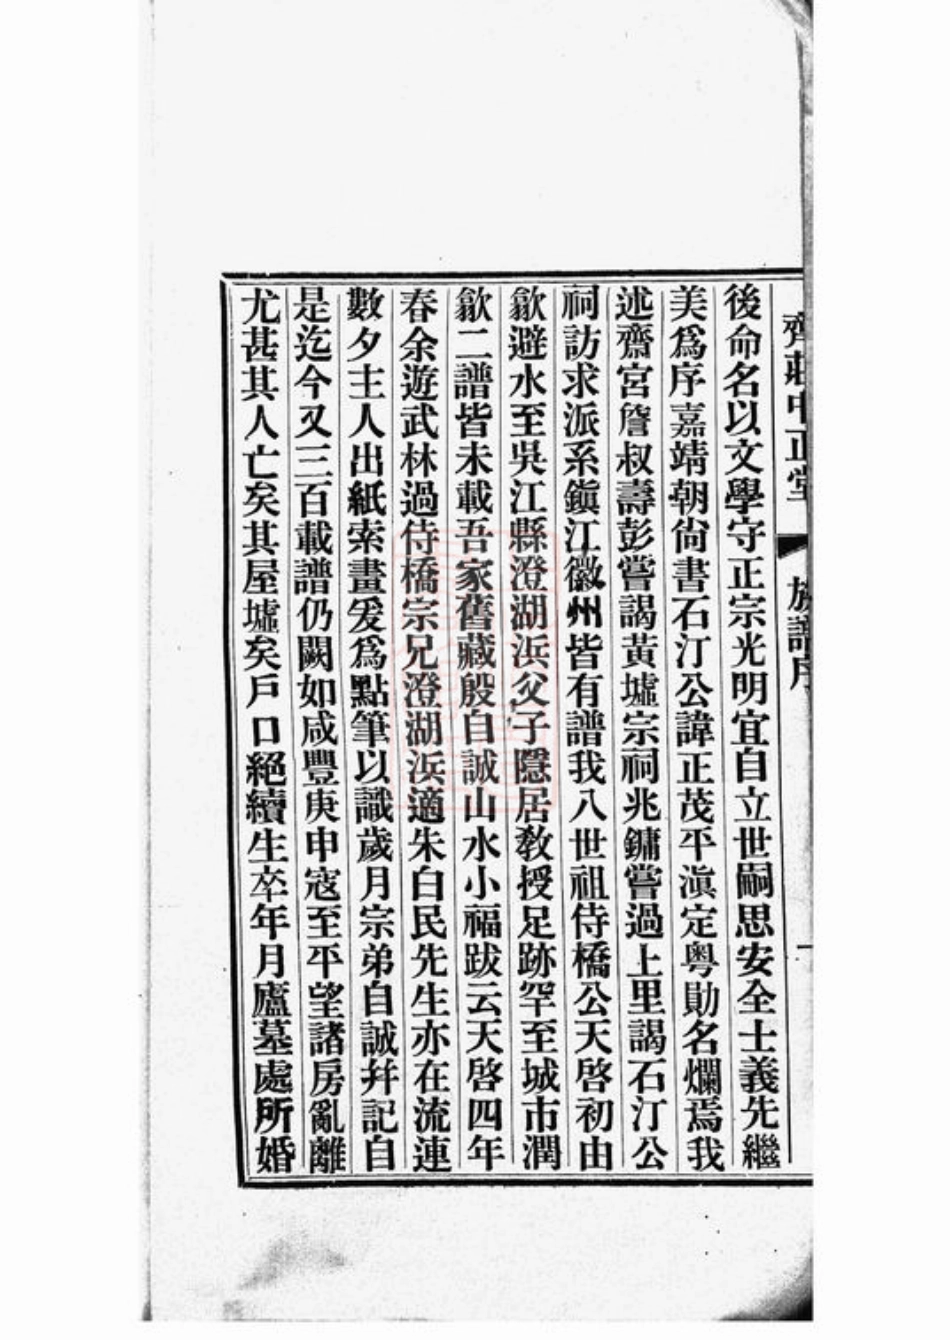 齊莊中正堂 族譜序 一
後命名以文學守正宗光明宜自立世嗣思安全士義先繼
美爲序嘉靖朝尙書石汀公諱正茂平滇定粤勛名爛焉我
述齋宮詹叔壽彭嘗謁黃墟宗祠兆鏞嘗過上里謁石汀公
祠訪求派系鎭江徽州皆有譜我八世祖侍橋公天啓初由
歙避水至吳江縣澄湖浜父子隱居敎授足跡罕至城市潤
歙二譜皆未載吾家舊藏殷自誠山水小福跋云天啓四年
春余遊武林過侍橋宗兄澄湖浜適朱白民先生亦在流連
數夕主人出紙索畫爰爲點筆以識歲月宗弟自誠幷記自
是迄今又三百載譜仍闕如咸豐庚申寇至平望諸房亂離
尤甚其人亡矣其屋墟矣戶口絕續生卒年月廬墓處所婚